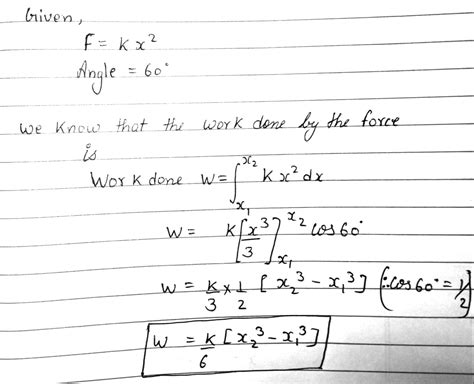 Given,
F = K x²
Angle = 60°
We know that the work done by the force
is
Work done W = ∫_{x₁}^{x₂} K x² dx
W = K[x³/3]_{x₁}^{x₂} cos 60°
W = K/3 × 1/2 [x₂³ - x₁³] (∵ cos 60° = 1/2)
W = K/6 [x₂³ - x₁³]